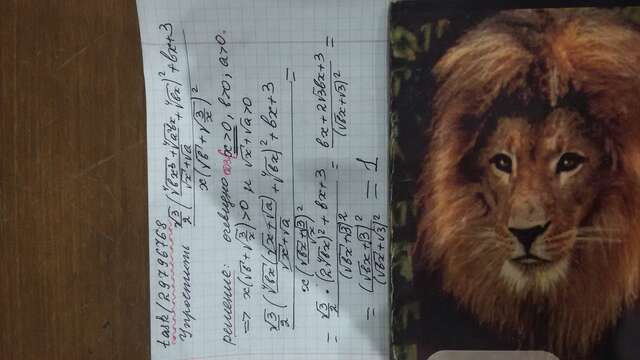 task/29796768
Упростить (√3/2 ((⁴√(bx³) + ⁴√(a²bx))/(√x + √a) + ⁴√(bx))² + bx + 3) / (x(√b + √(3/x))²)
решение: очевидно x>0, b>0, a>0.
⇒ x(√b + √(3/x))>0 и √x + √a>0
(√3/2 ((⁴√(bx)(√x + √a))/(√x + √a) + ⁴√(bx))² + bx + 3) / (x((√(bx) + √3)/√x)²) =
= (√3/2 · (2⁴√(bx))² + bx + 3) / (√(bx) + √3)² = (bx + 2√(3bx) + 3) / (√(bx) + √3)² =
= (√(bx) + √3)² / (√(bx) + √3)² = 1